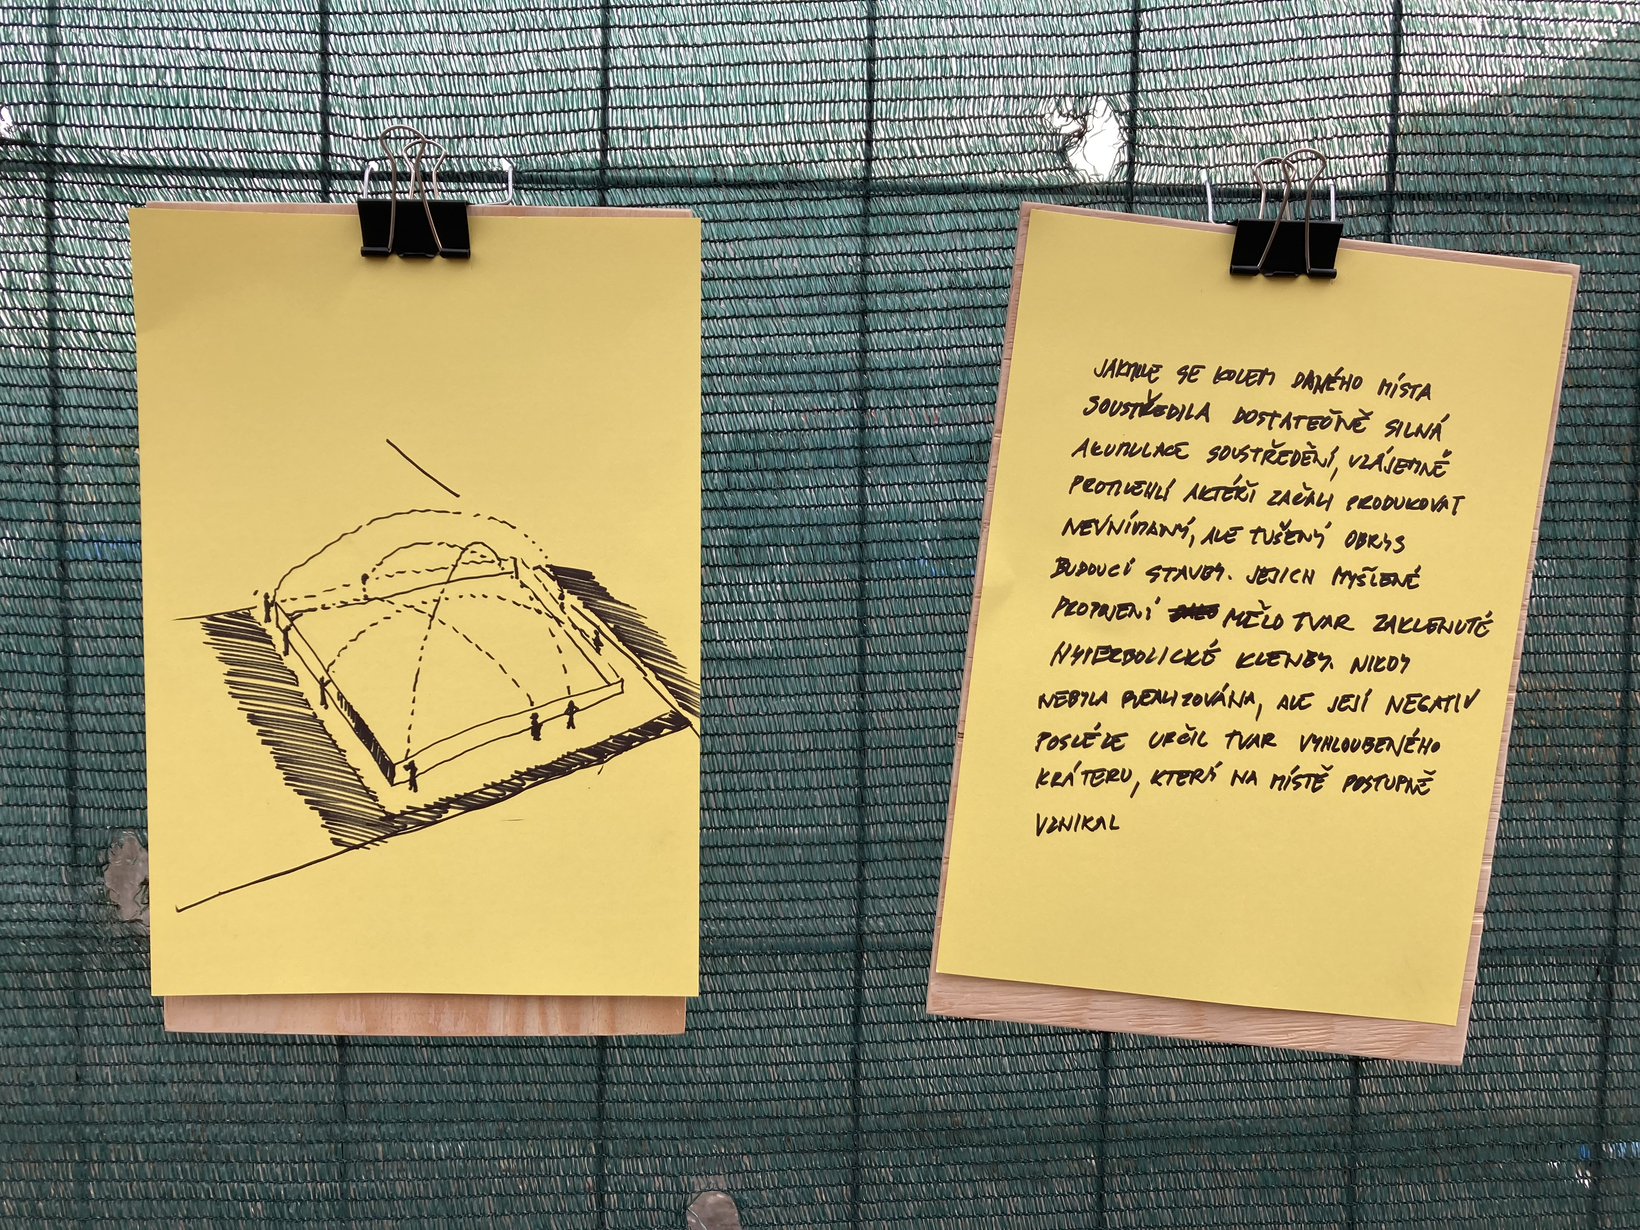 JAKMILE SE KOLEM DANÉHO MÍSTA
SOUSTŘEDILA DOSTATEČNĚ SILNÁ
AKUMULACE SOUSTŘEDĚNÍ, VZÁJEMNĚ
PROTILEHLÍ AKTÉŘI ZAČALI PRODUKOVAT
NEVNÍMANÝ, ALE TUŠENÝ OBRYS
BUDOUCÍ STAVBY. JEJICH MYŠLENÉ
PROPOJENÍ MĚLO TVAR ZAKLENUTÉ
HYPERBOLICKÉ KLENBY. NIKDY
NEBYLA REALIZOVÁNA, ALE JEJÍ NEGATIV
POSLÉZE URČIL TVAR VYHLOUBENÉHO
KRÁTERU, KTERÝ NA MÍSTĚ POSTUPNĚ
VZNIKAL